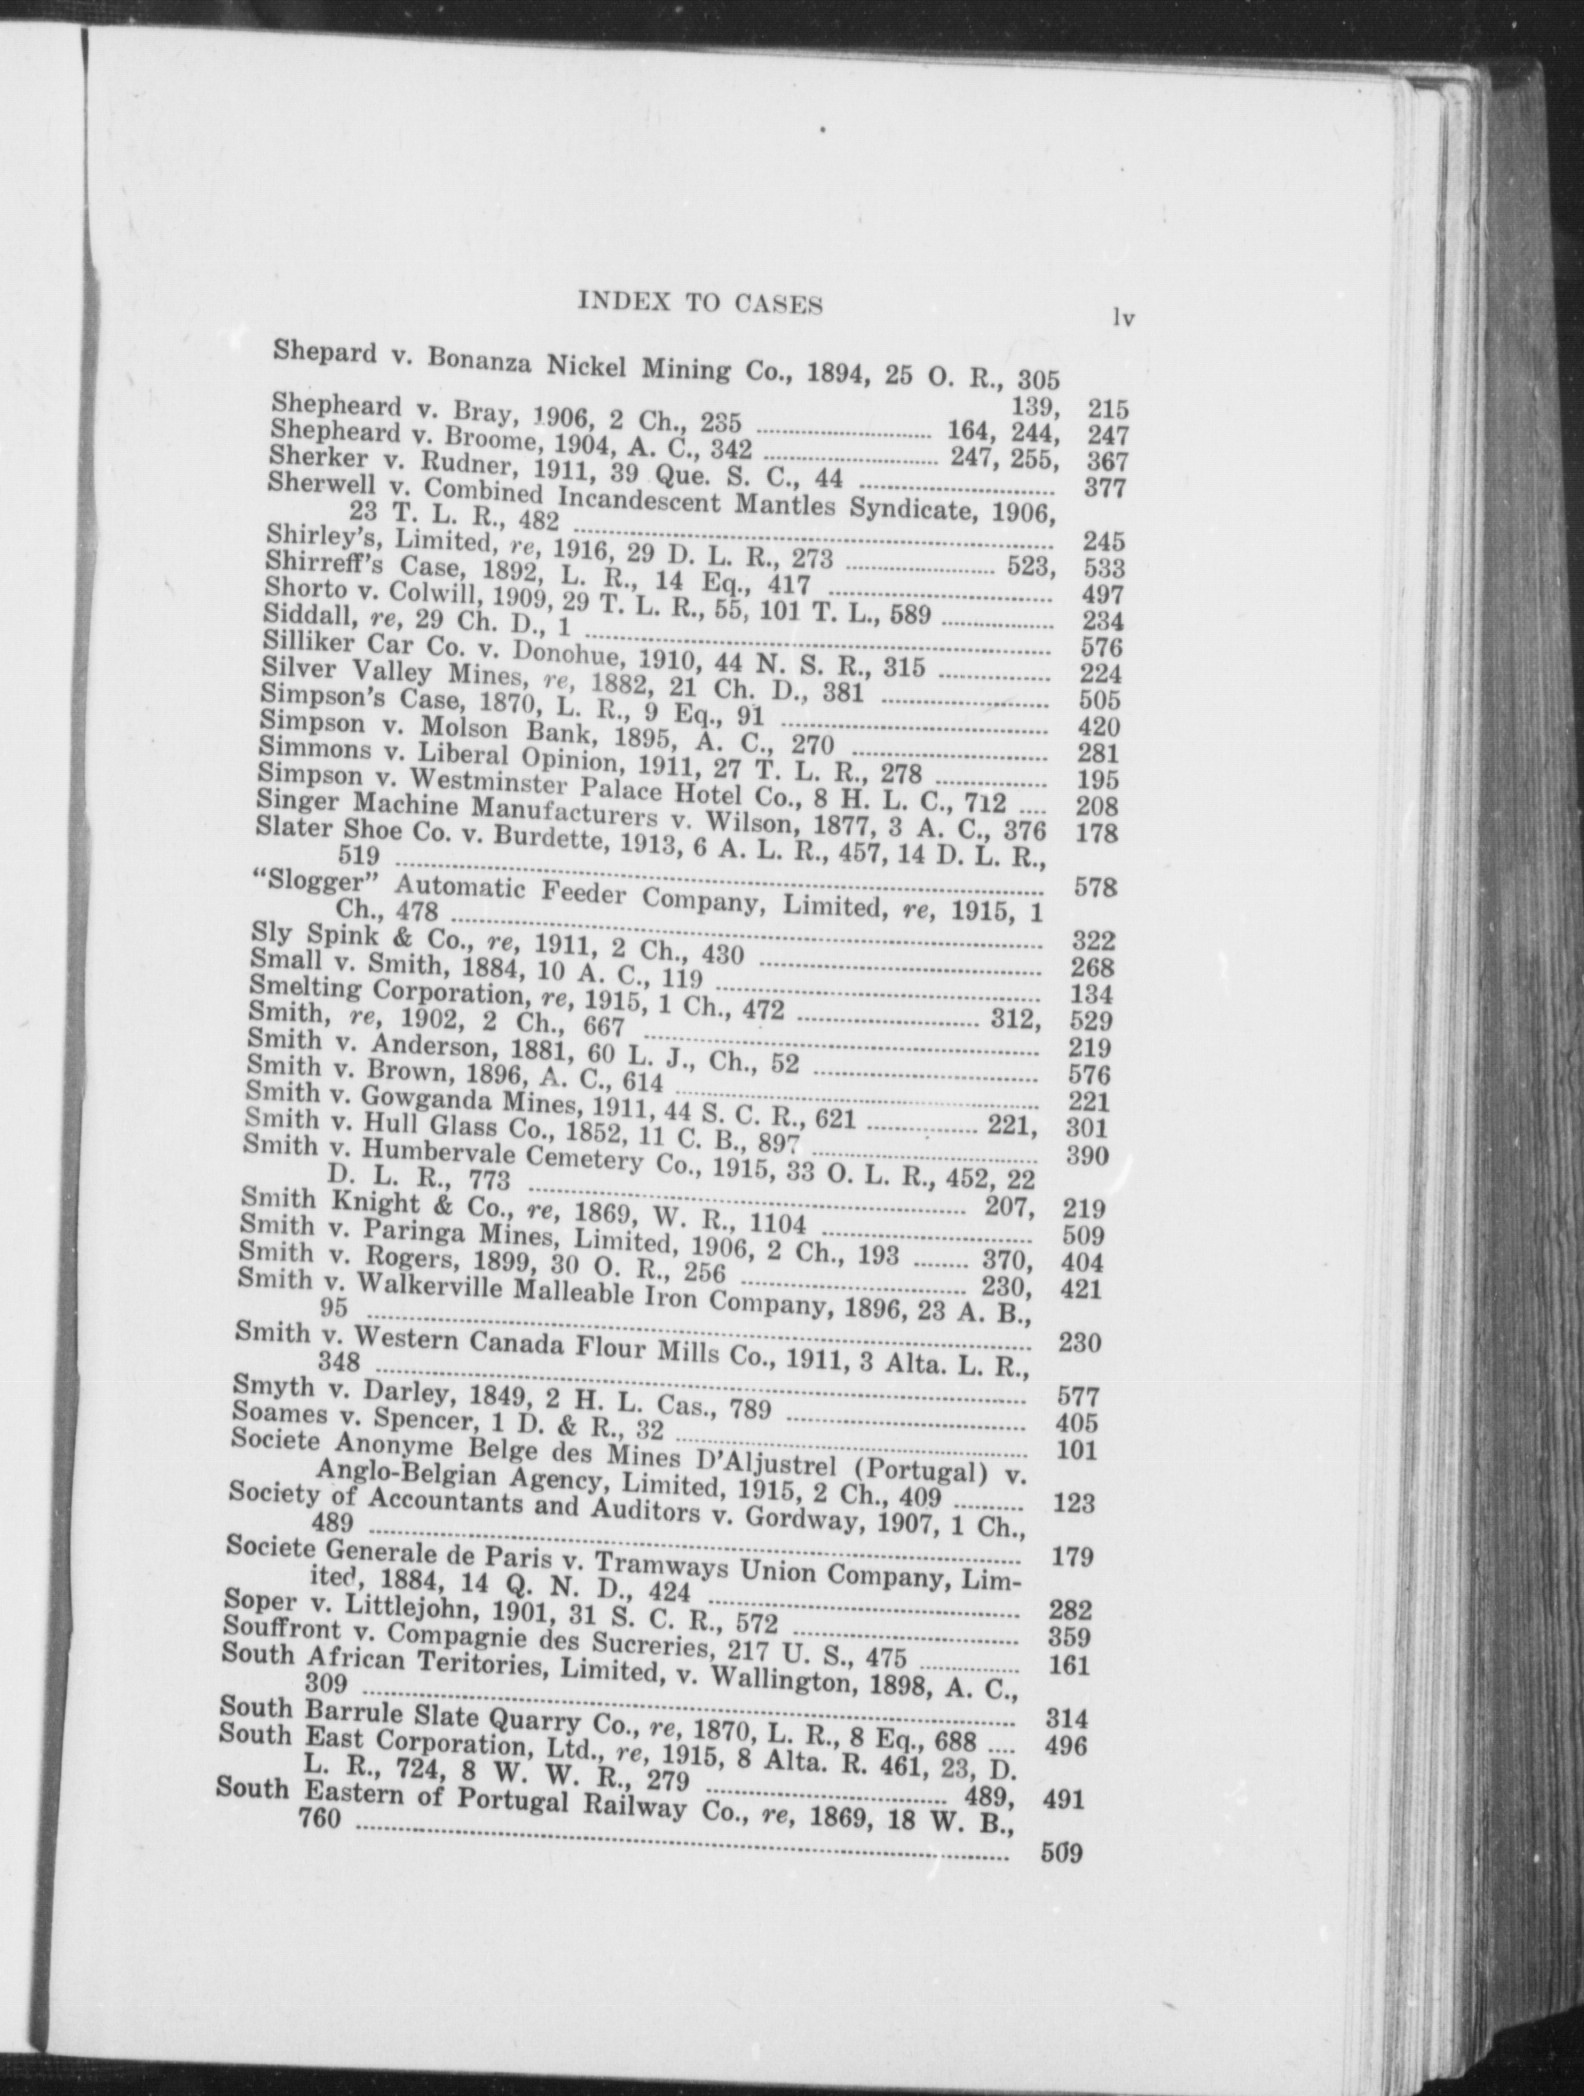 INDEX TO CASES lv
Shepard v. Bonanza Nickel Mining Co., 1894, 25 O. R., 305
139, 215
Shepheard v. Bray, 1906, 2 Ch., 235 ........ 164, 244, 247
Shepheard v. Broome, 1904, A. C., 342 ........ 247, 255, 367
Sherker v. Rudner, 1911, 39 Que. S. C., 44 ........ 377
Sherwell v. Combined Incandescent Mantles Syndicate, 1906,
23 T. L. R., 482 ........ 245
Shirley's, Limited, re, 1916, 29 D. L. R., 273 ........ 523, 533
Shirreff's Case, 1892, L. R., 14 Eq., 417 ........ 497
Shorto v. Colwill, 1909, 29 T. L. R., 55, 101 T. L., 589 ........ 234
Siddall, re, 29 Ch. D., 1 ........ 576
Silliker Car Co. v. Donohue, 1910, 44 N. S. R., 315 ........ 224
Silver Valley Mines, re, 1882, 21 Ch. D., 381 ........ 505
Simpson's Case, 1870, L. R., 9 Eq., 91 ........ 420
Simpson v. Molson Bank, 1895, A. C., 270 ........ 281
Simmons v. Liberal Opinion, 1911, 27 T. L. R., 278 ........ 195
Simpson v. Westminster Palace Hotel Co., 8 H. L. C., 712 .... 208
Singer Machine Manufacturers v. Wilson, 1877, 3 A. C., 376 178
Slater Shoe Co. v. Burdette, 1913, 6 A. L. R., 457, 14 D. L. R.,
519 ........ 578
"Slogger" Automatic Feeder Company, Limited, re, 1915, 1
Ch., 478 ........ 322
Sly Spink & Co., re, 1911, 2 Ch., 430 ........ 268
Small v. Smith, 1884, 10 A. C., 119 ........ 134
Smelting Corporation, re, 1915, 1 Ch., 472 ........ 312, 529
Smith, re, 1902, 2 Ch., 667 ........ 219
Smith v. Anderson, 1881, 60 L. J., Ch., 52 ........ 576
Smith v. Brown, 1896, A. C., 614 ........ 221
Smith v. Gowganda Mines, 1911, 44 S. C. R., 621 ........ 221, 301
Smith v. Hull Glass Co., 1852, 11 C. B., 897 ........ 390
Smith v. Humbervale Cemetery Co., 1915, 33 O. L. R., 452, 22
D. L. R., 773 ........ 207, 219
Smith Knight & Co., re, 1869, W. R., 1104 ........ 509
Smith v. Paringa Mines, Limited, 1906, 2 Ch., 193 ........ 370, 404
Smith v. Rogers, 1899, 30 O. R., 256 ........ 230, 421
Smith v. Walkerville Malleable Iron Company, 1896, 23 A. B.,
95 ........ 230
Smith v. Western Canada Flour Mills Co., 1911, 3 Alta. L. R.,
348 ........ 577
Smyth v. Darley, 1849, 2 H. L. Cas., 789 ........ 405
Soames v. Spencer, 1 D. & R., 32 ........ 101
Societe Anonyme Belge des Mines D'Aljustrel (Portugal) v.
Anglo-Belgian Agency, Limited, 1915, 2 Ch., 409 ........ 123
Society of Accountants and Auditors v. Gordway, 1907, 1 Ch.,
489 ........ 179
Societe Generale de Paris v. Tramways Union Company, Lim-
ited, 1884, 14 Q. N. D., 424 ........ 282
Soper v. Littlejohn, 1901, 31 S. C. R., 572 ........ 359
Souffront v. Compagnie des Sucreries, 217 U. S., 475 ........ 161
South African Teritories, Limited, v. Wallington, 1898, A. C.,
309 ........ 314
South Barrule Slate Quarry Co., re, 1870, L. R., 8 Eq., 688 .... 496
South East Corporation, Ltd., re, 1915, 8 Alta. R. 461, 23, D.
L. R., 724, 8 W. W. R., 279 ........ 489, 491
South Eastern of Portugal Railway Co., re, 1869, 18 W. B.,
760 ........ 509